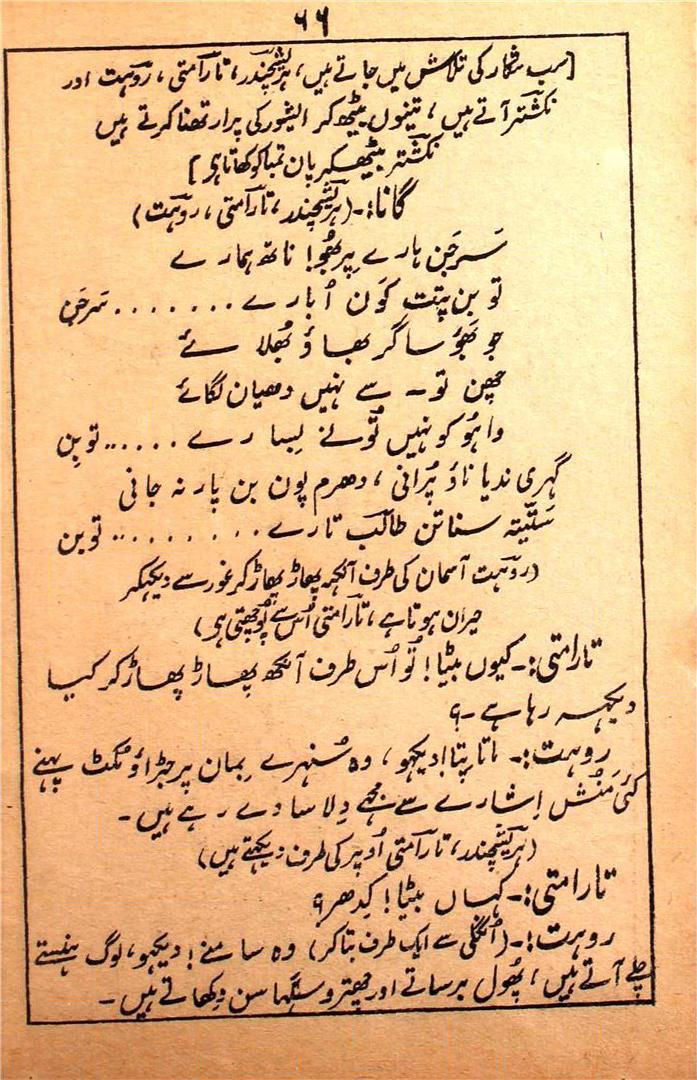 ۶۶
[سب شکار کی تلاش میں جاتے ہیں، ہریشچندر، تارامتی، روہت اور
نکشتر آتے ہیں، تینوں بیٹھ کر ایشور کی پرارتھنا کرتے ہیں
نکشتر بیٹھکر پان تمباکو کھاتا ہی]
گانا:۔ (ہریشچندر، تارامتی، روہت)
سَرجَن ہارے پربھُو! ناتھ ہمارے
تو بن پتت کَون اُبارے ........ سَرجَن
جو بَھَو ساگر بھاؤ بُھلائے
چھن تو۔ سے نہیں دھیان لگائے
واہُو کو نہیں تُونے بسارے ....... تو بِن
گہری ندیا ناؤ پُرانی، دھرم پون بن پار نہ جانی
سَتّیہ سناتن طالب تارے .......... تو بن
(روہت آسمان کی طرف آنکھ پھاڑ پھاڑ کر غور سے دیکھکر
حیران ہوتا ہے، تارامتی اُس سے پُوچھتی ہی)
تارامتی:۔ کیوں بیٹا! تُو اُس طرف آنکھ پھاڑ پھاڑ کر کیا
دیکھہ رہا ہے۔؟
روہت:۔ ماتا پتا! دیکھو، وہ سُنہرے بِمان پر جڑاؤ مُکٹ پہنے
کئی مَنُش اِشارے سے مجھے دِلاسا دے رہے ہیں۔
(ہریشچندر، تارامتی اُوپر کی طرف دیکھتے ہیں)
تارامتی:۔ کہاں بیٹا! کِدھر؟
روہت:۔ (اُنگلی سے ایک طرف بتا کر) وہ سامنے! دیکھو، لوگ ہنستے
چلے آتے ہیں، پُھول برساتے اور چھتر و سنگھاسن دِکھاتے ہیں۔